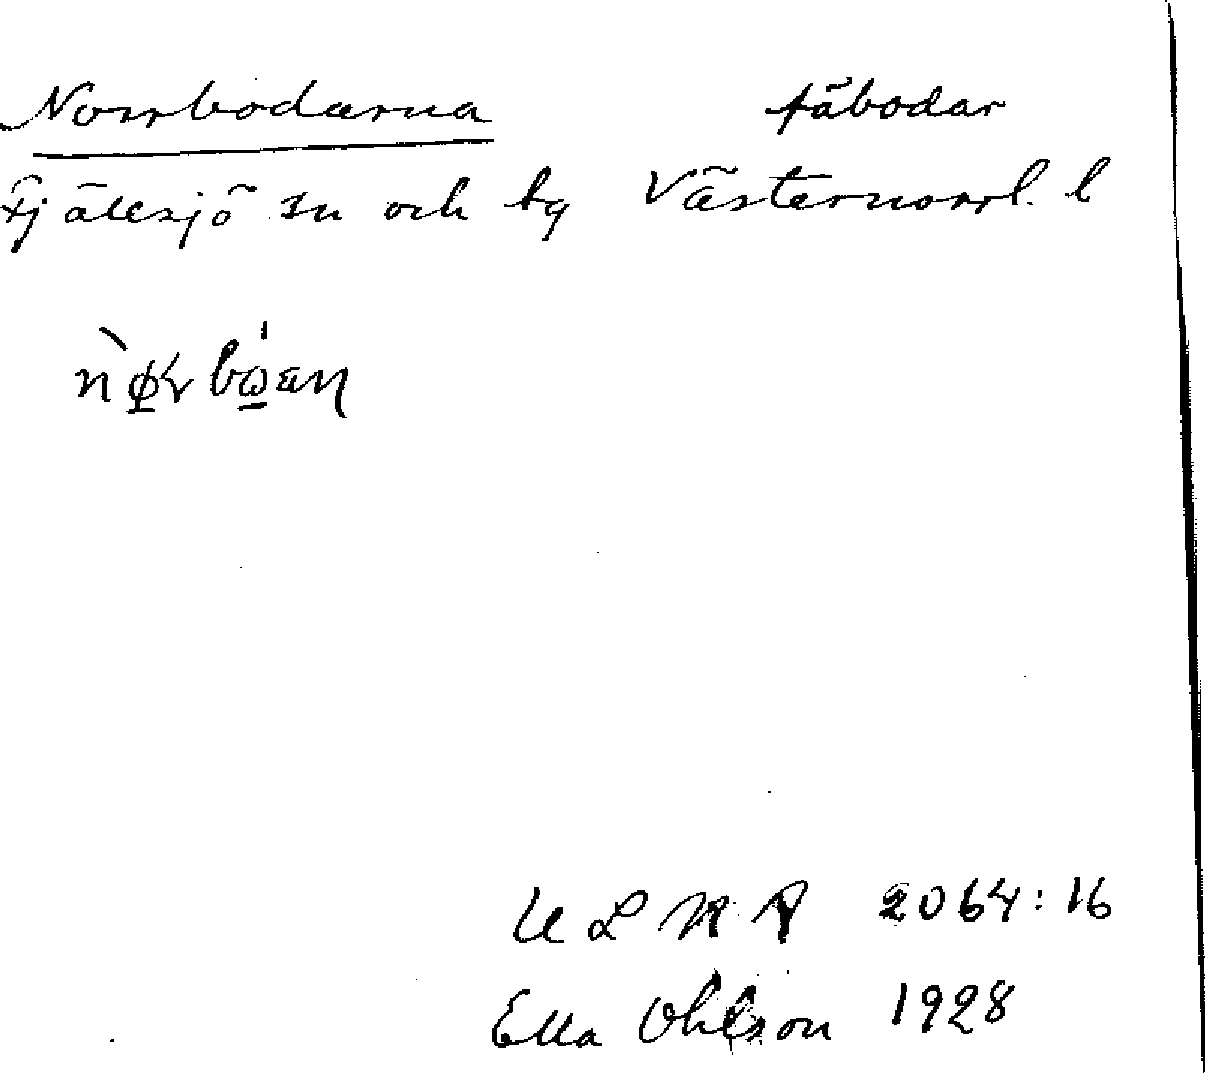 Norrbodarna fäbodar
Fjällsjö sn och by Västernorrl. l
2064:16
Ella Ohlson 1928